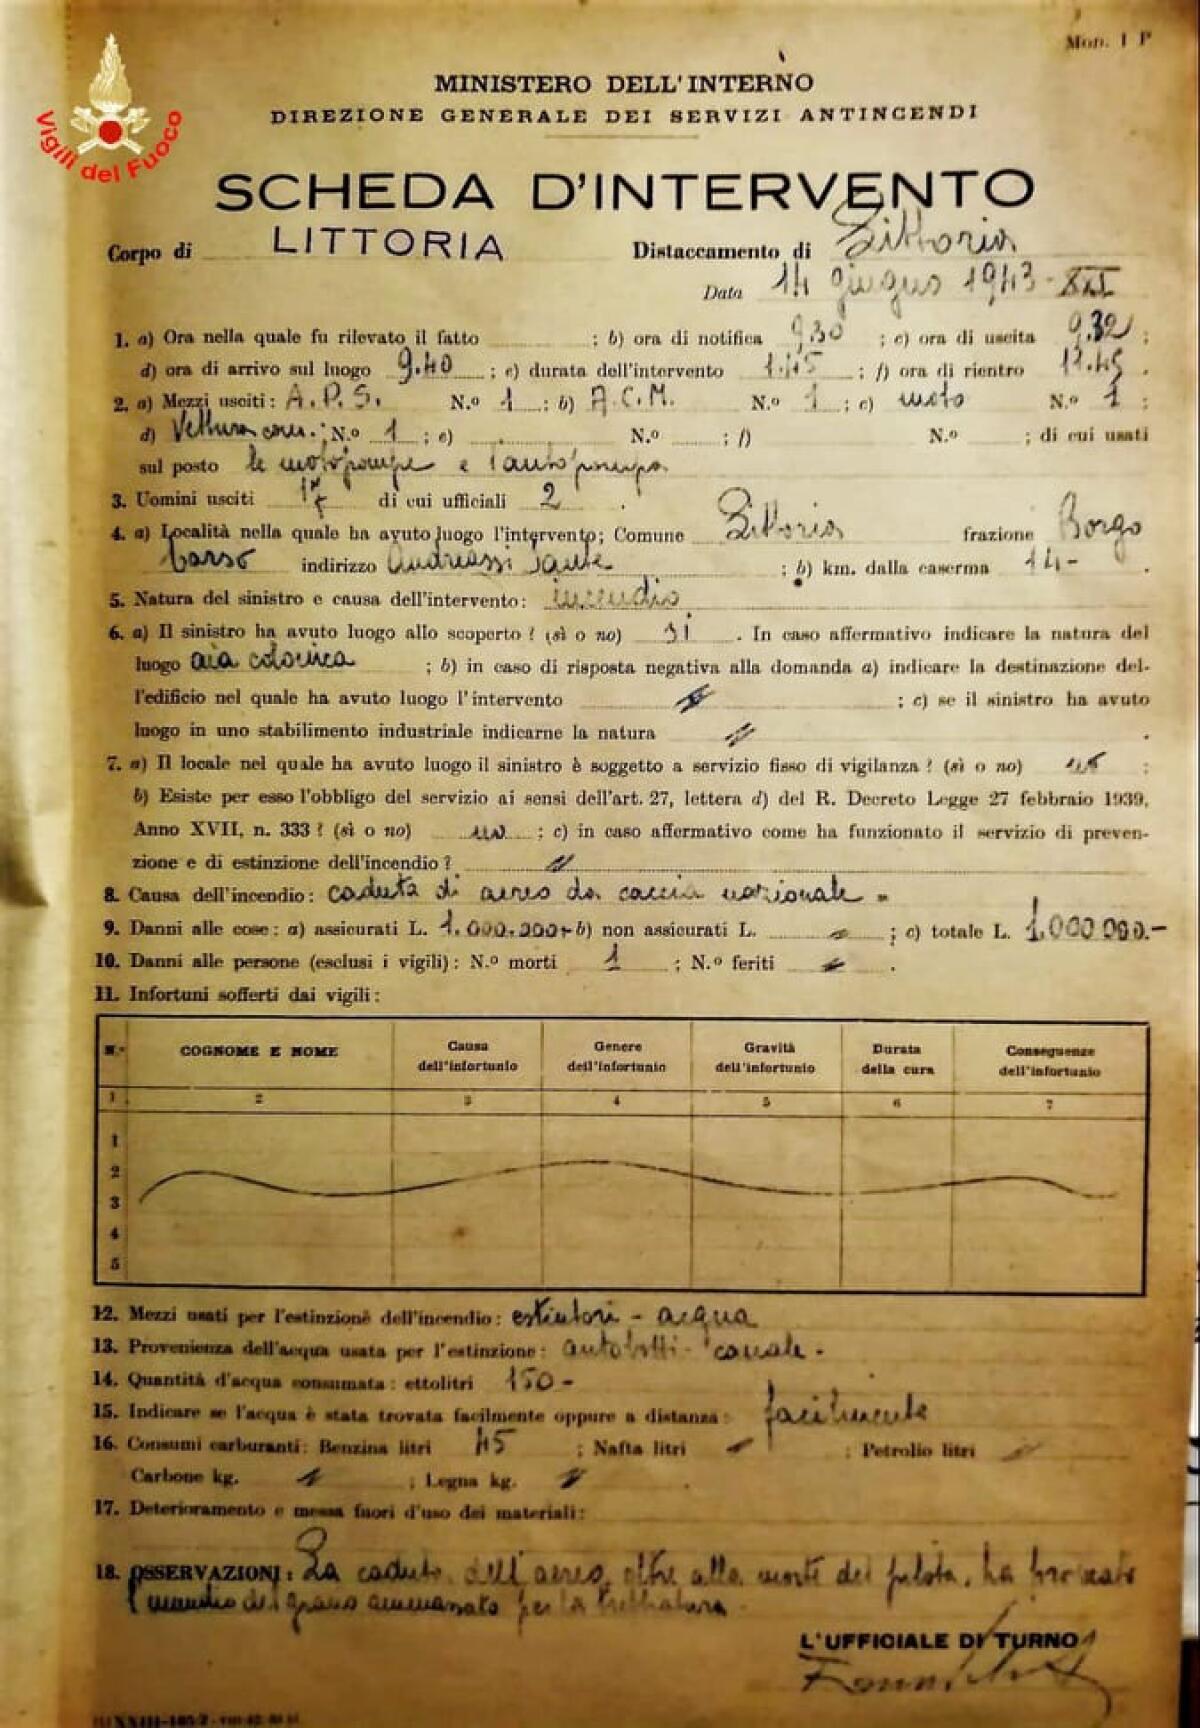 Mod. 1 P
Vigili del Fuoco
MINISTERO DELL'INTERNO
DIREZIONE GENERALE DEI SERVIZI ANTINCENDI
SCHEDA D'INTERVENTO
Corpo di LITTORIA Distaccamento di Littoria
Data 14 giugno 1943-XXI
1. a) Ora nella quale fu rilevato il fatto ; b) ora di notifica 9,30 ; c) ora di uscita 9,32 ;
d) ora di arrivo sul luogo 9.40 ; e) durata dell'intervento 1.45 ; f) ora di rientro 11.45 .
2. a) Mezzi usciti: A.P.S. N.o 1 ; b) A.C.M. N.o 1 ; c) moto N.o 1 ;
d) Vettura com.; N.o 1 ; e) N.o ; f) N.o ; di cui usati
sul posto le motopompe e l'autopompa
3. Uomini usciti di cui ufficiali 2 .
4. a) Località nella quale ha avuto luogo l'intervento; Comune Littoria frazione Borgo
Carso indirizzo Andreassi Sante ; b) km. dalla caserma 14- .
5. Natura del sinistro e causa dell'intervento: incendio
6. a) Il sinistro ha avuto luogo allo scoperto? (sì o no) si . In caso affermativo indicare la natura del
luogo aia colonica ; b) in caso di risposta negativa alla domanda a) indicare la destinazione del-
l'edificio nel quale ha avuto luogo l'intervento ; c) se il sinistro ha avuto
luogo in uno stabilimento industriale indicarne la natura .
7. a) Il locale nel quale ha avuto luogo il sinistro è soggetto a servizio fisso di vigilanza? (sì o no) no ;
b) Esiste per esso l'obbligo del servizio ai sensi dell'art. 27, lettera d) del R. Decreto Legge 27 febbraio 1939,
Anno XVII, n. 333? (sì o no) no ; c) in caso affermativo come ha funzionato il servizio di preven-
zione e di estinzione dell'incendio?
8. Causa dell'incendio: caduta di aereo da caccia nazionale
9. Danni alle cose: a) assicurati L. 1.000.000- b) non assicurati L. ; c) totale L. 1.000.000.-
10. Danni alle persone (esclusi i vigili): N.o morti 1 ; N.o feriti .
11. Infortuni sofferti dai vigili:
N.o COGNOME E NOME Causa dell'infortunio Genere dell'infortunio Gravità dell'infortunio Durata della cura Conseguenze dell'infortunio
1 2 3 4 5 6 7
1
2
3
4
5
12. Mezzi usati per l'estinzione dell'incendio: estintori - acqua
13. Provenienza dell'acqua usata per l'estinzione: autobotti - canale -
14. Quantità d'acqua consumata: ettolitri 150-
15. Indicare se l'acqua è stata trovata facilmente oppure a distanza: facilmente
16. Consumi carburanti: Benzina litri 45 ; Nafta litri ; Petrolio litri
Carbone kg. ; Legna kg. .
17. Deterioramento e messa fuori d'uso dei materiali:
18. OSSERVAZIONI: La caduta dell'aereo, oltre alla morte del pilota, ha provocato
l'incendio del grano ammassato per la trebbiatura.
L'UFFICIALE DI TURNO